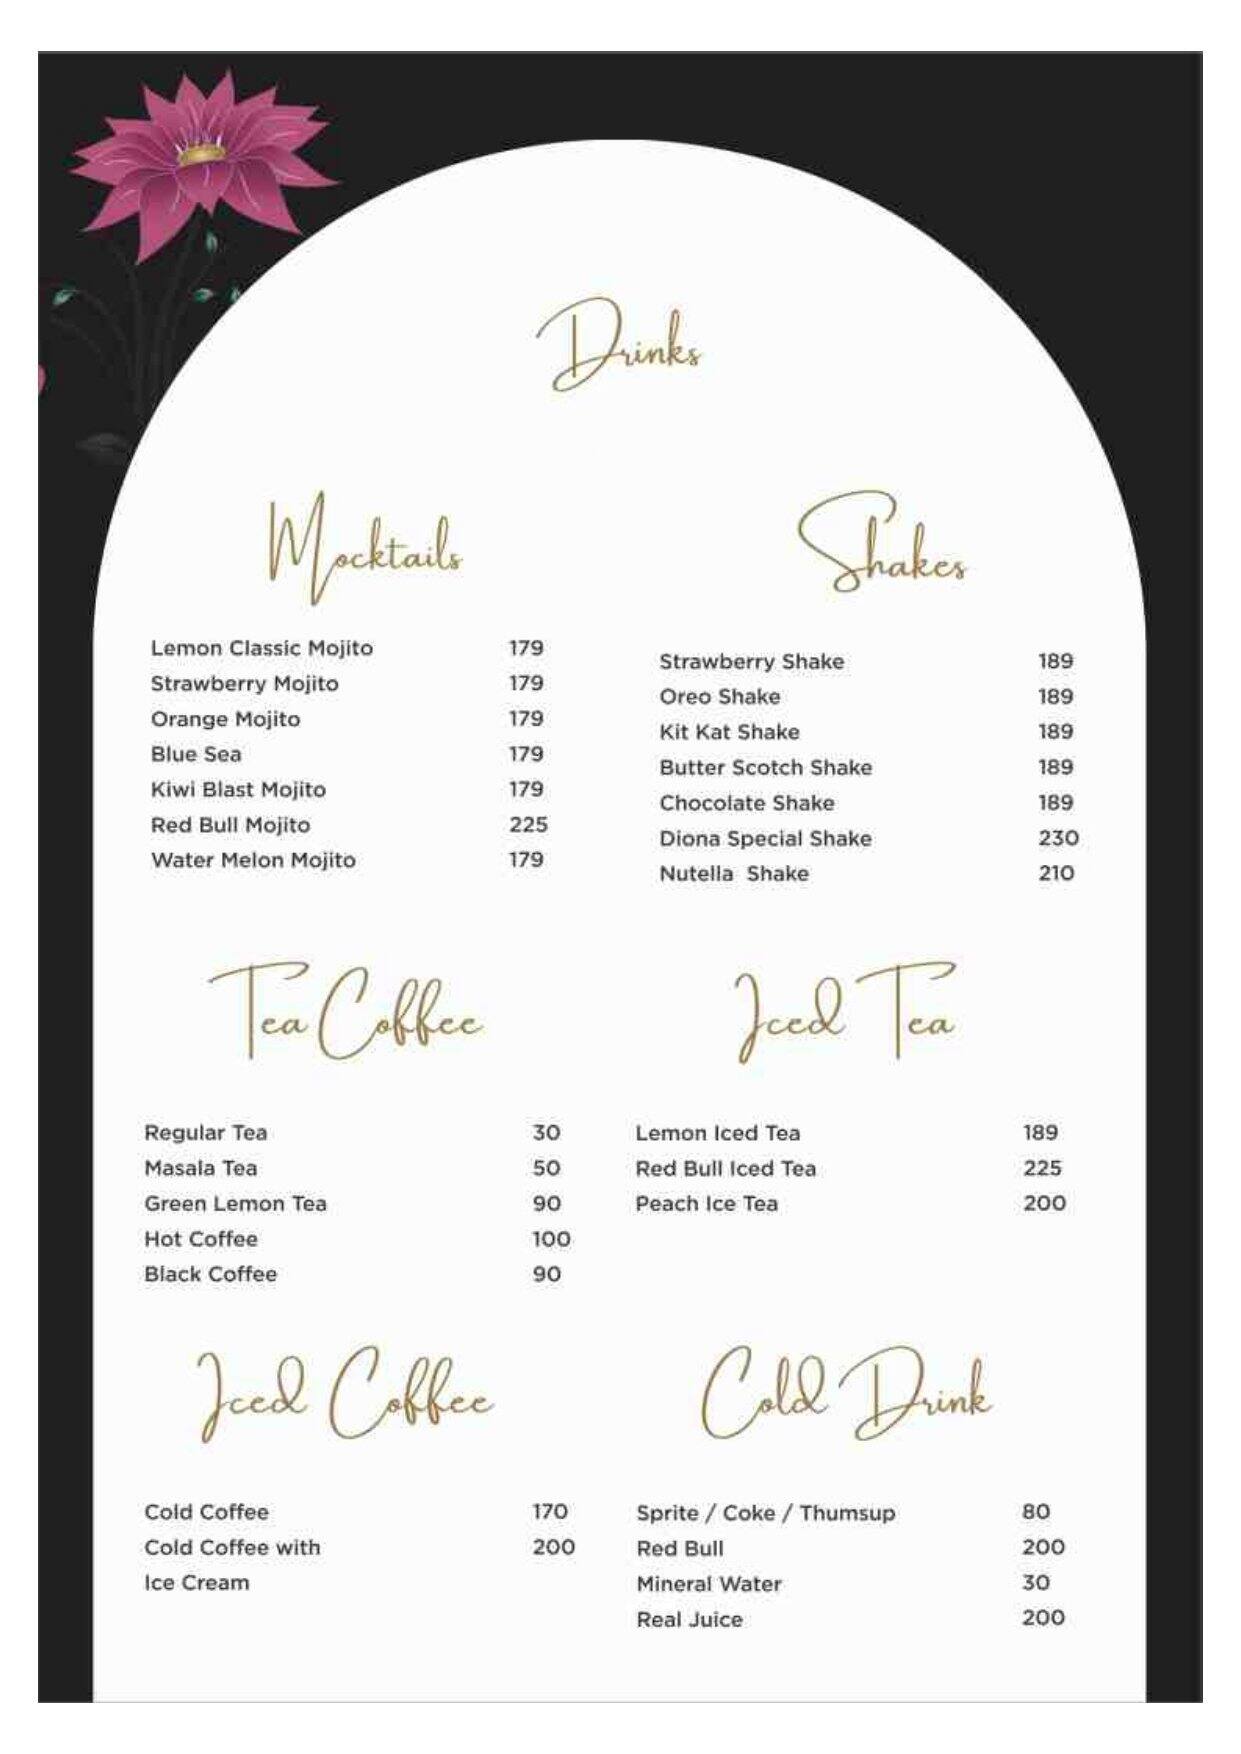 Drinks
Mocktails
Lemon Classic Mojito 179
Strawberry Mojito 179
Orange Mojito 179
Blue Sea 179
Kiwi Blast Mojito 179
Red Bull Mojito 225
Water Melon Mojito 179
Shakes
Strawberry Shake 189
Oreo Shake 189
Kit Kat Shake 189
Butter Scotch Shake 189
Chocolate Shake 189
Diona Special Shake 230
Nutella Shake 210
Tea Coffee
Regular Tea 30
Masala Tea 50
Green Lemon Tea 90
Hot Coffee 100
Black Coffee 90
Iced Tea
Lemon Iced Tea 189
Red Bull Iced Tea 225
Peach Ice Tea 200
Iced Coffee
Cold Coffee 170
Cold Coffee with 200
Ice Cream
Cold Drink
Sprite / Coke / Thumsup 80
Red Bull 200
Mineral Water 30
Real Juice 200